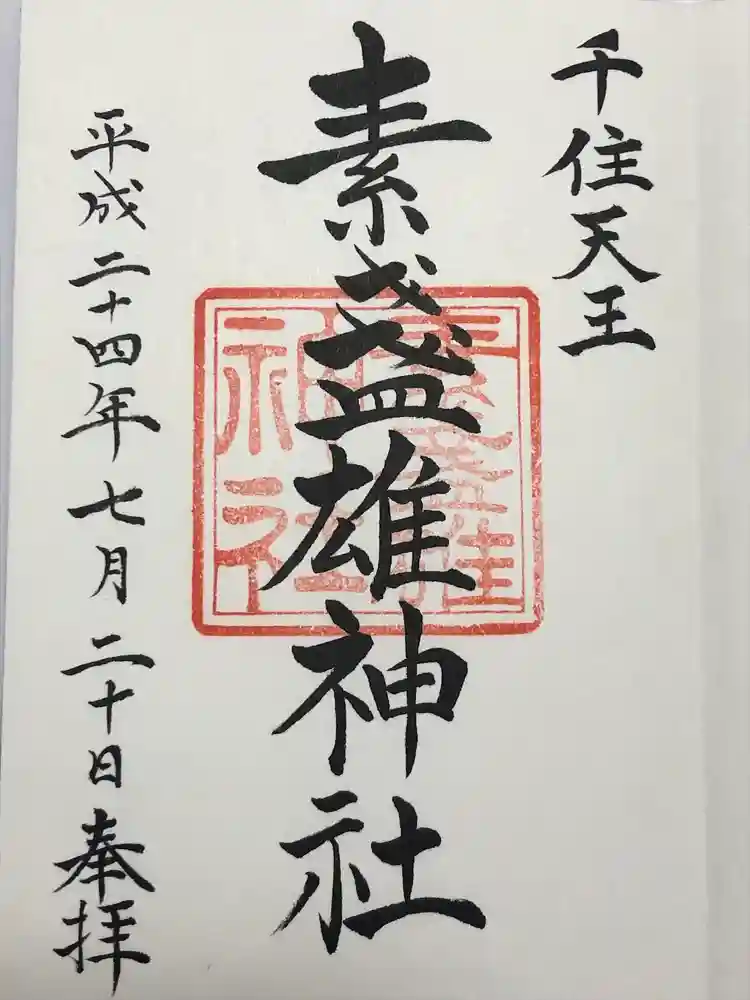 千住天王
素盞雄神社
平成二十四年七月二十日奉拝
素盞雄
神社